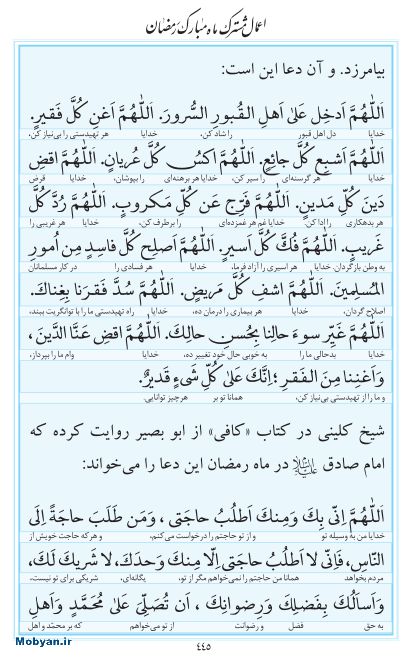 اعمال مشترک ماه مبارک رمضان
بیامرزد. و آن دعا این است:
اَللّٰهُمَّ اَدخِل عَلیٰ اَهلِ القُبورِ السُّرورَ. اَللّٰهُمَّ اَغنِ کُلَّ فَقیرٍ.
خدایا دل اهل قبور را شاد کن، خدایا هر تهیدستی را بی‌نیاز کن،
اَللّٰهُمَّ اَشبِع کُلَّ جائِعٍ. اَللّٰهُمَّ اکسُ کُلَّ عُریانٍ. اَللّٰهُمَّ اقضِ
خدایا هر گرسنه‌ای را سیر کن، خدایا هر برهنه‌ای را بپوشان، خدایا قرض
دَینَ کُلِّ مَدینٍ. اَللّٰهُمَّ فَرِّج عَن کُلِّ مَکروبٍ. اَللّٰهُمَّ رُدَّ کُلَّ
هر بدهکاری را ادا کن، خدایا غم هر غمزده‌ای را برطرف کن، خدایا هر غریبی را
غَریبٍ. اَللّٰهُمَّ فُکَّ کُلَّ اَسیرٍ. اَللّٰهُمَّ اَصلِح کُلَّ فاسِدٍ مِن اُمورِ
به وطن بازگردان. خدایا هر اسیری را آزاد فرما، خدایا هر فسادی را در کار مسلمانان
المُسلِمینَ. اَللّٰهُمَّ اشفِ کُلَّ مَریضٍ. اَللّٰهُمَّ سُدَّ فَقرَنا بِغِناکَ.
اصلاح گردان، خدایا هر بیماری را درمان ده، خدایا راه تهیدستی ما را با توانگریت ببند،
اَللّٰهُمَّ غَیِّر سوءَ حالِنا بِحُسنِ حالِکَ. اَللّٰهُمَّ اقضِ عَنَّا الدَّینَ،
خدایا بدحالی ما را به خوبی حال خود تغییر ده، خدایا وام ما را بپرداز،
وَ اَغنِنا مِنَ الفَقرِ؛ اِنَّکَ عَلیٰ کُلِّ شَیءٍ قَدیرٌ.
و ما را از تهیدستی بی‌نیاز کن، همانا تو بر هر چیز توانایی.
شیخ کلینی در کتاب «کافی» از ابو بصیر روایت کرده که
امام صادق علیه‌السلام در ماه رمضان این دعا را می‌خواند:
اَللّٰهُمَّ اِنّی بِکَ وَ مِنکَ اَطلُبُ حاجَتی، وَ مَن طَلَبَ حاجَةً اِلَی
خدایا من به وسیله تو و از تو حاجتم را درخواست می‌کنم، و هر که حاجت خویش از
النّاسِ، فَاِنّی لا اَطلُبُ حاجَتی اِلّا مِنکَ وَحدَکَ، لا شَریکَ لَکَ،
مردم بخواهد همانا من حاجتم را نمی‌خواهم مگر از تو، یگانه‌ای، شریکی برای تو نیست،
وَ اَسأَلُکَ بِفَضلِکَ وَ رِضوانِکَ، اَن تُصَلِّیَ عَلیٰ مُحَمَّدٍ وَ اَهلِ
به حق فضل و رضوانت از تو می‌خواهم که بر محمّد و اهل
٤٤٥
Mobyan.ir